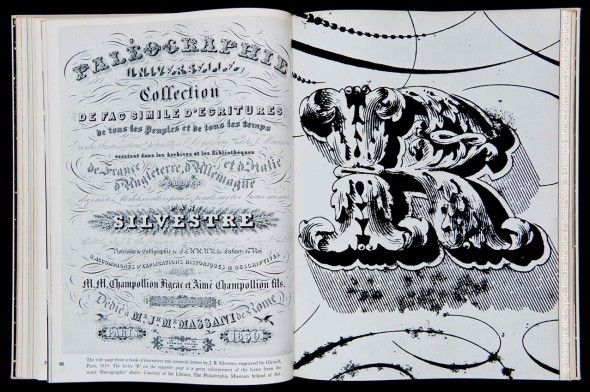 PALÉOGRAPHIE
UNIVERSELLE
Collection
DE FAC SIMILE D'ECRITURES
de tous les Peuples et de tous les temps
existant dans les Archives et les Bibliothèques
de France et d'Italie
d'Angleterre, d'Allemagne
SILVESTRE
Professeur de Calligraphie de
ACCOMPAGNÉS D'EXPLICATIONS HISTORIQUES & DESCRIPTIVES
M.M. Champollion Figeac et Aimé Champollion fils.
Dédié à Mr. Jh. Mr. MASSANI de Rome
PARIS 1850
96
The title page from a book of decorative and romantic letters by J. B. Silvestre, engraved by Girault,
Paris, The letter 'R' on the opposite page is a great enlargement of the letter from the
word 'Paleographie' above. Courtesy of the Library, The Philadelphia Museum School of Art.
R
© design et typo. tous droits réservés à usage strictement pédagogique